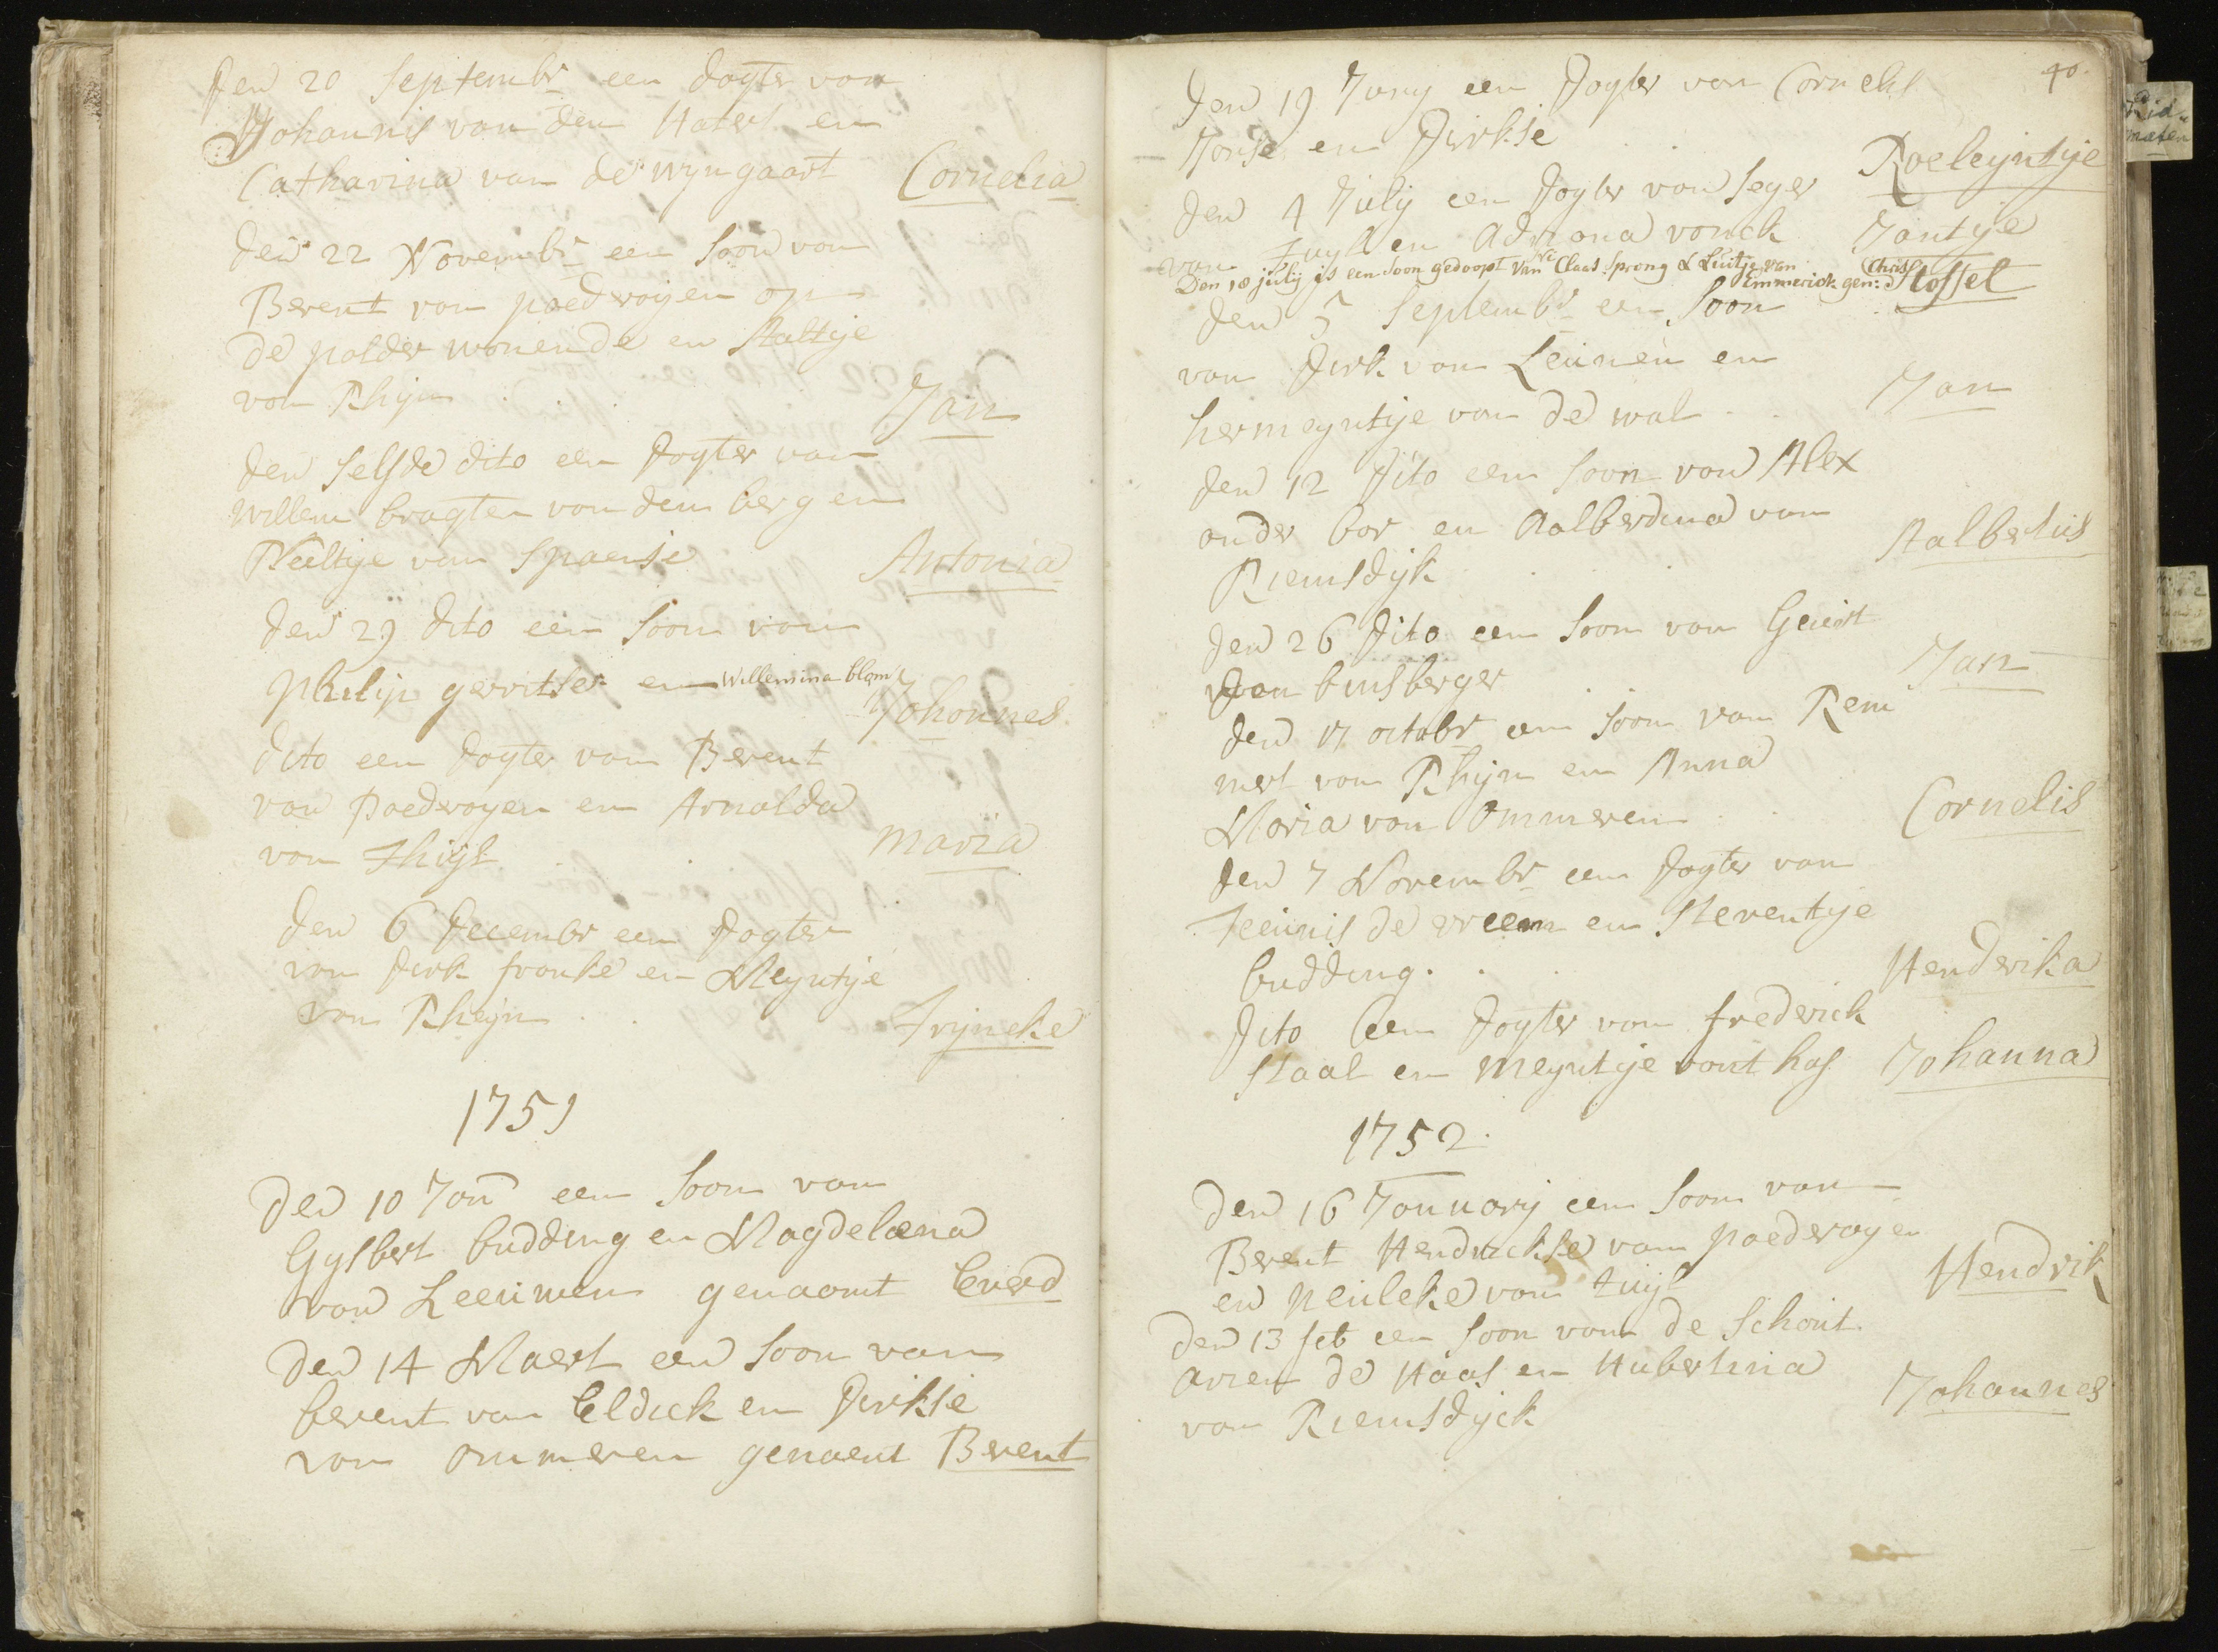 den 20 septembr een dogter van
Johannis van den Haters en
Catharina van de wyngaart Cornelia
den 22 Novembr een soon van
Berent van poedroijen op
de polder wonende en Aaltje
van Rhijn . . . Jan
den selfde dito een dogter van
willem bragten van den berg en
Neeltje van Spaensje Antonia
den 29 dito een soon van
philip gerritse en Willemina blom Johonnes
dito een dogter van Berent
van Poedroyen en Arnolda
van Thuijl . . maria
den 6 decembr een dogter
van dirk franke en Meyntje
van Rheijn . . Trijneke
1751
den 10 Jan een soon van
Gysbert budding en Magdelæna
van Leeuwen genaamt Everd
den 14 Maert een soon van
berent van Eldick en dirkse
van ommeren genaent Berent
40.
den 19 Juny een dogter van Cornelis
Jonse en Dirkse . Roeleyntje
den 4 July een dogter van seger
van Tuyl en Adriana vonck Jantje
Den 18 julij is een soon gedoopt van Claas Sprong & Luitje van
Emmerick gen: Chris Stoffel
den 5 Septembr een soon
van dirk van Leunen en
hermeyntje van de wal . . Jan
den 12 dito een soon van Alex
ander bor en Aalberdina van
Riemsdijk . . . Aalbertus
den 26 dito een soon van Geurt
van binsberger Jan
den 17 octobr een soon van Rein
mert van Rhijn en Anna
Maria van Ommeren . . Cornelis
den 7 Novembr een dogter van
Teunis de vreem en Steventje
budding . . . Henderika
dito een dogter van frederick
staal en meyntje vant hof Johanna
1752.
den 16 Januarij een soon van
Berent Hendrickse van poederoyen
en Neuleke van tuijl Hendrik
den 13 feb een soon van de Schout.
arien de Haas en Hubertina
van Riemsdijck Johannes